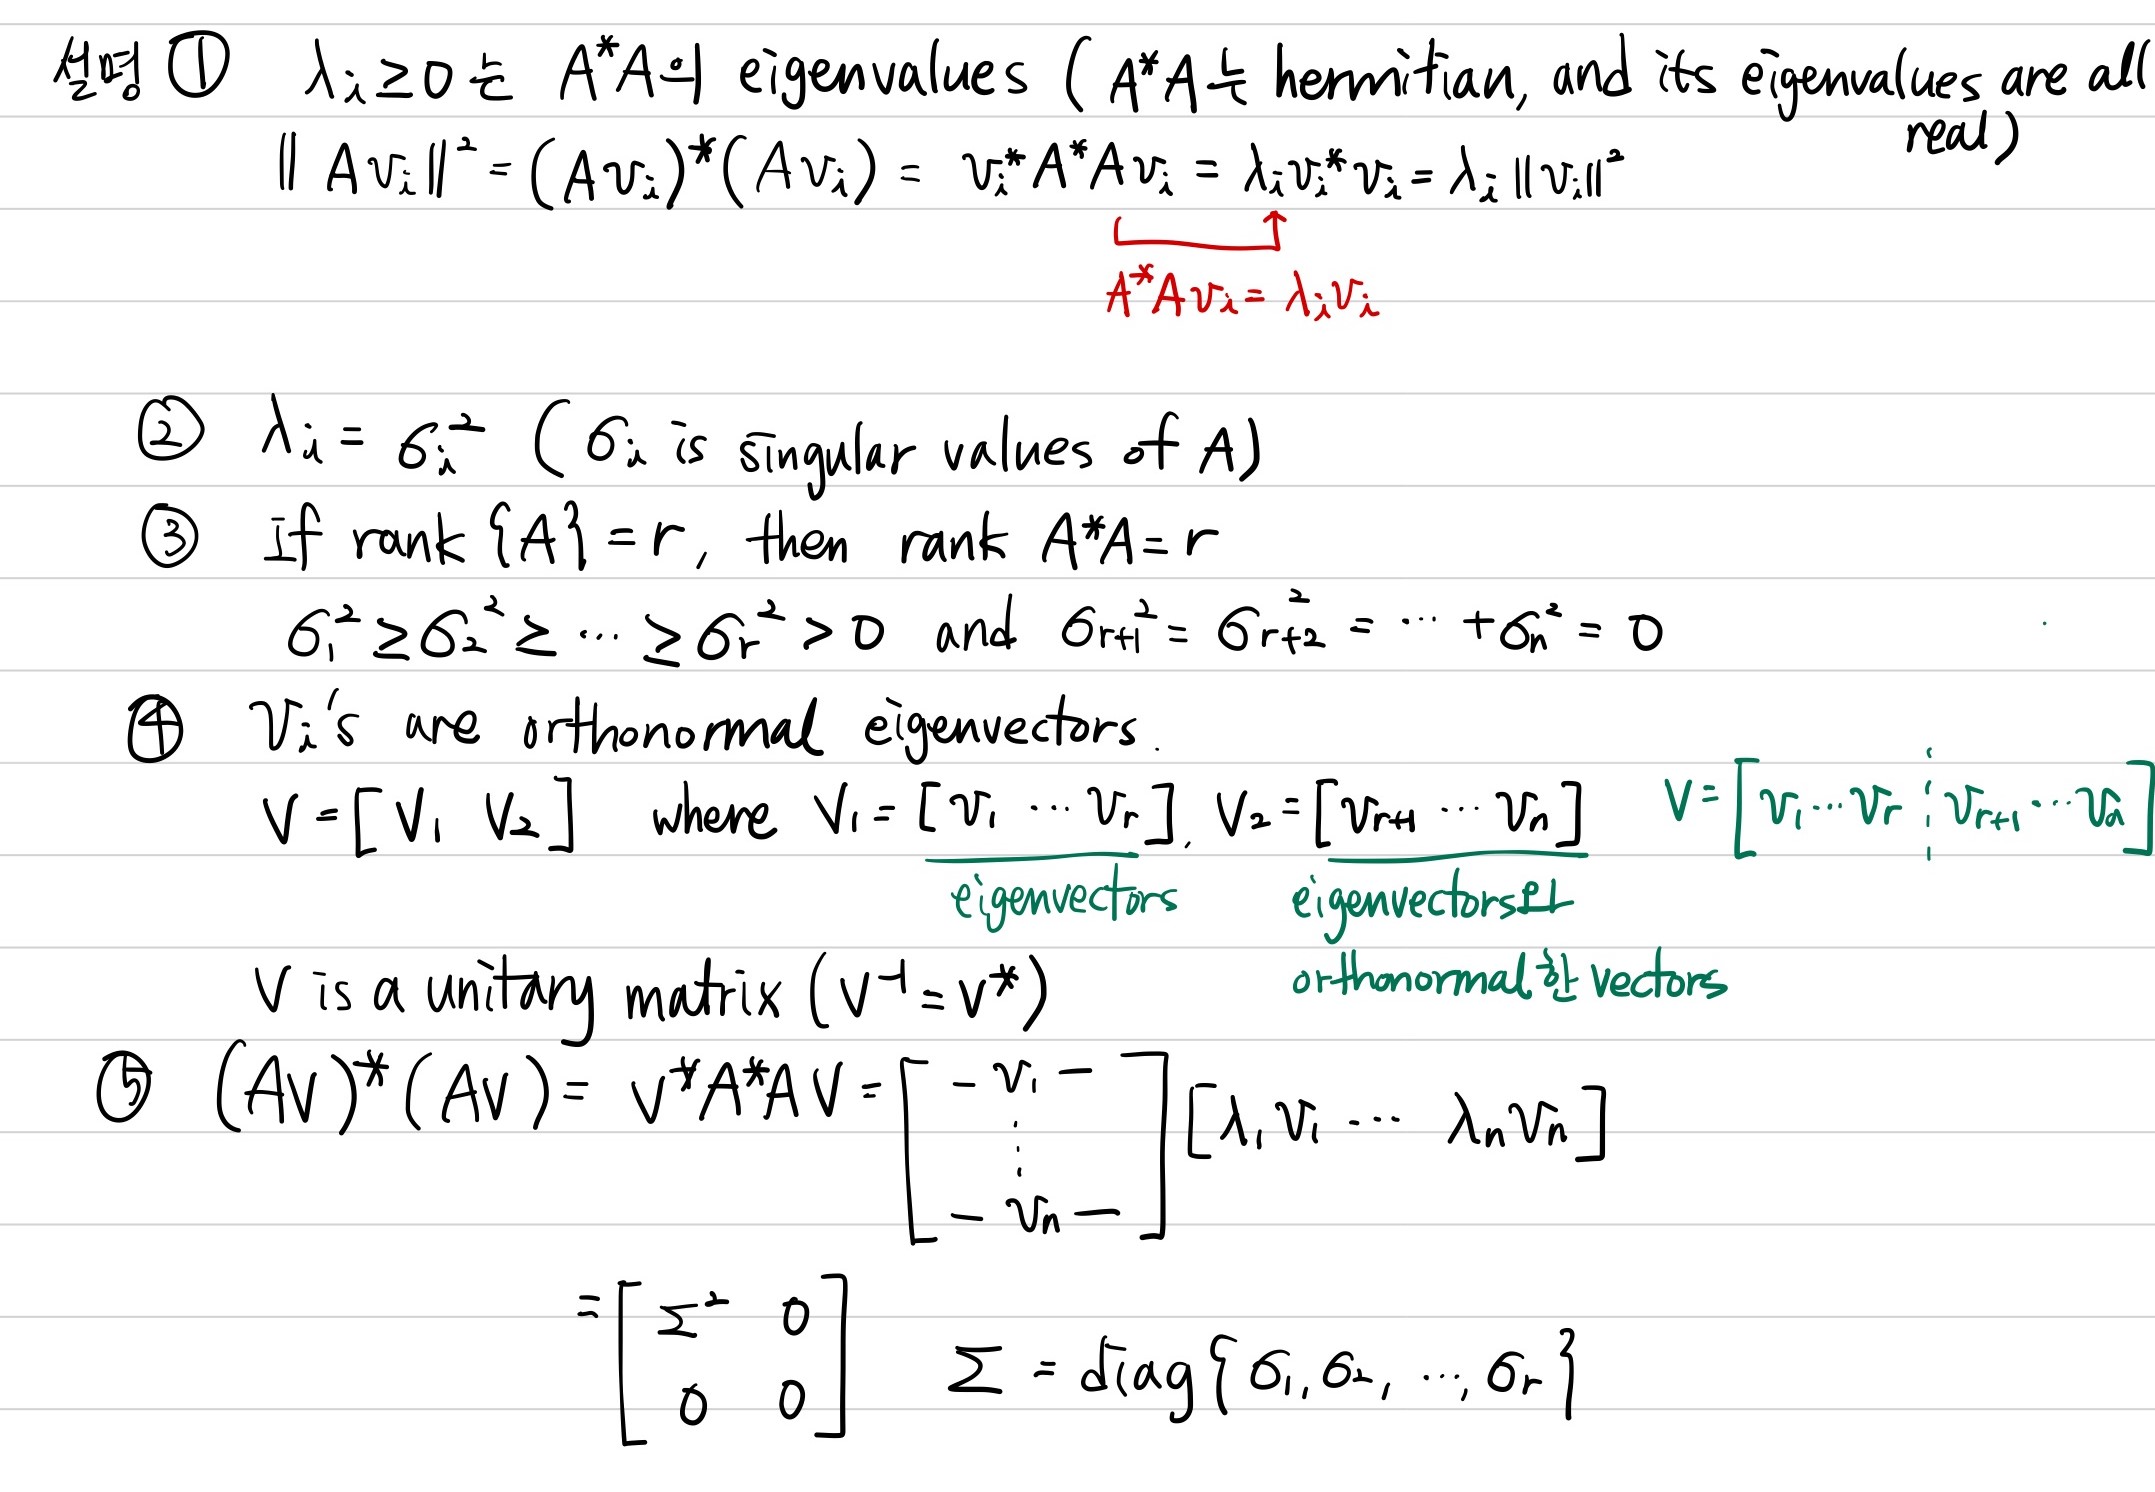 설명 ① λᵢ≥0는 A*A의 eigenvalues (A*A는 hermitian, and its eigenvalues are all real)
‖Avᵢ‖² = (Avᵢ)*(Avᵢ) = vᵢ*A*Avᵢ = λᵢvᵢ*vᵢ = λᵢ‖vᵢ‖²
A*Avᵢ = λᵢvᵢ
② λᵢ = σᵢ² (σᵢ is singular values of A)
③ If rank {A} = r, then rank A*A = r
σ₁² ≥ σ₂² ≥ ⋯ ≥ σᵣ² > 0 and σᵣ₊₁² = σᵣ₊₂² = ⋯ + σₙ² = 0
④ vᵢ's are orthonormal eigenvectors.
V = [V₁ V₂] where V₁ = [v₁ ⋯ vᵣ], V₂ = [vᵣ₊₁ ⋯ vₙ] V = [v₁ ⋯ vᵣ ⋮ vᵣ₊₁ ⋯ vₙ]
eigenvectors eigenvectors랑
orthonormal한 vectors
V is a unitary matrix (V⁻¹ = V*)
⑤ (AV)*(AV) = V*A*AV = [- v₁ - ⋮ - vₙ -] [λ₁v₁ ⋯ λₙvₙ]
= [Σ² 0
0 0] Σ = diag{σ₁, σ₂, ⋯, σᵣ}